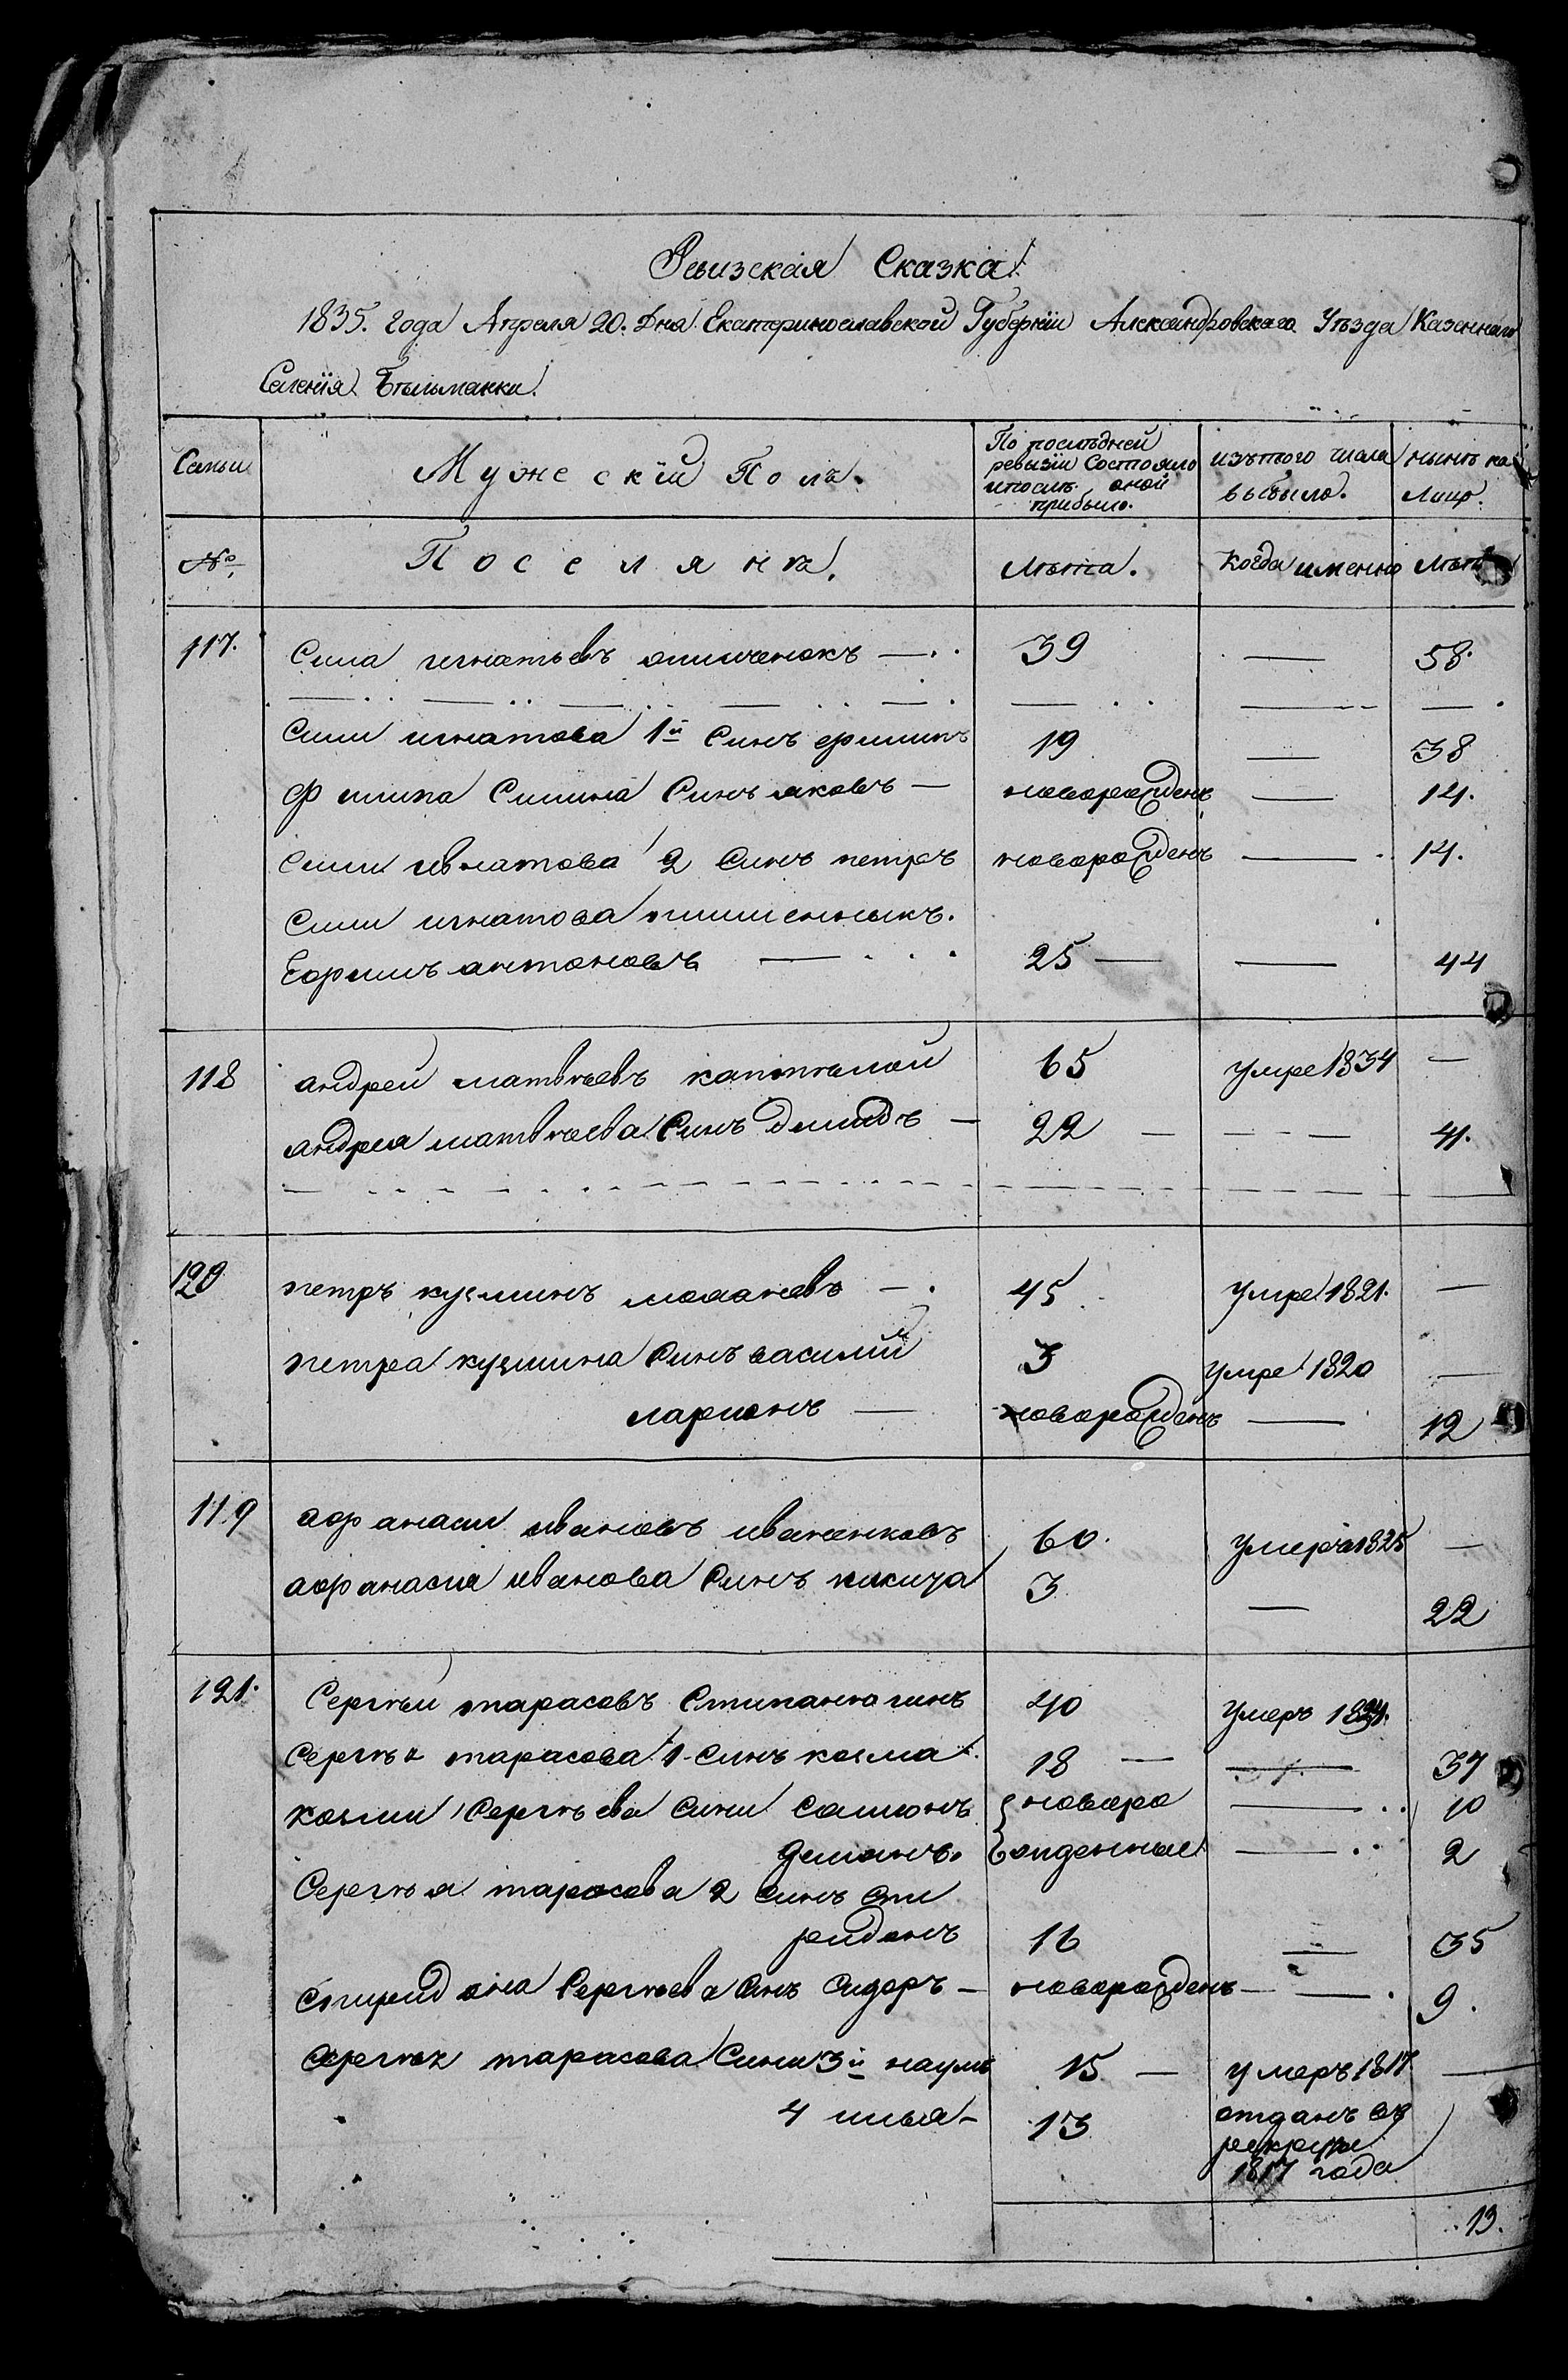 Ревизская Сказка
1835. Года Апреля 20. Дня Екатеринославской Губернїи Александровскаго Уѣзда Казеннаго
Селенїя Бѣльманки.
Семьи
Мужескїй Полъ.
По послѣдней
ревизїи Состояло
ипослѣ оной
прибыло.
изътого числа
выбыло.
нынѣ на
Лицо.
№
Поселянѣ.
Лѣта.
Когда именно
Лѣта
117. Сила игнатьевъ — 39 — 58.
Сили игнатова 1й Синъ филипъ 19 — 38
Филипа Силина Синъ яковъ — новорожденъ — 14.
Сили игнатова 2 Синъ петръ новорожденъ — 14.
Сили игнатова
Ефимъ антоновъ — 25 — — 44
118 андрей матвѣевъ 65 умре 1834 —
андрея матвѣева Синъ Демидъ — 22 — — 41.
120 петръ кузминъ — 45 Умре 1821. —
петра кузмина Синъ василий 3 умре 1820 —
ларионъ — новорожденъ — 12
119 афанаси ивановъ иваненковъ 60. Умеръ 1825 —
афанасия иванова Синъ никита 3 — 22
121. Сергѣй тарасовъ 40 Умеръ
Сергѣя тарасова 1 Синъ козма 18 — — 37
козми Сергѣева Сини Самионъ новоро — 10
Демянъ. жденные — 2
Сергѣя тарасова 2 Синъ Спи
ридонъ 16 — 35
Спиридона Сергѣева Синъ Сидоръ — новорожденъ — 9.
Сергѣя тарасова Сини 3й наумъ 15 — умеръ 1817 —
4 илья — 13 отданъ въ
рекруты
1817 года
13.